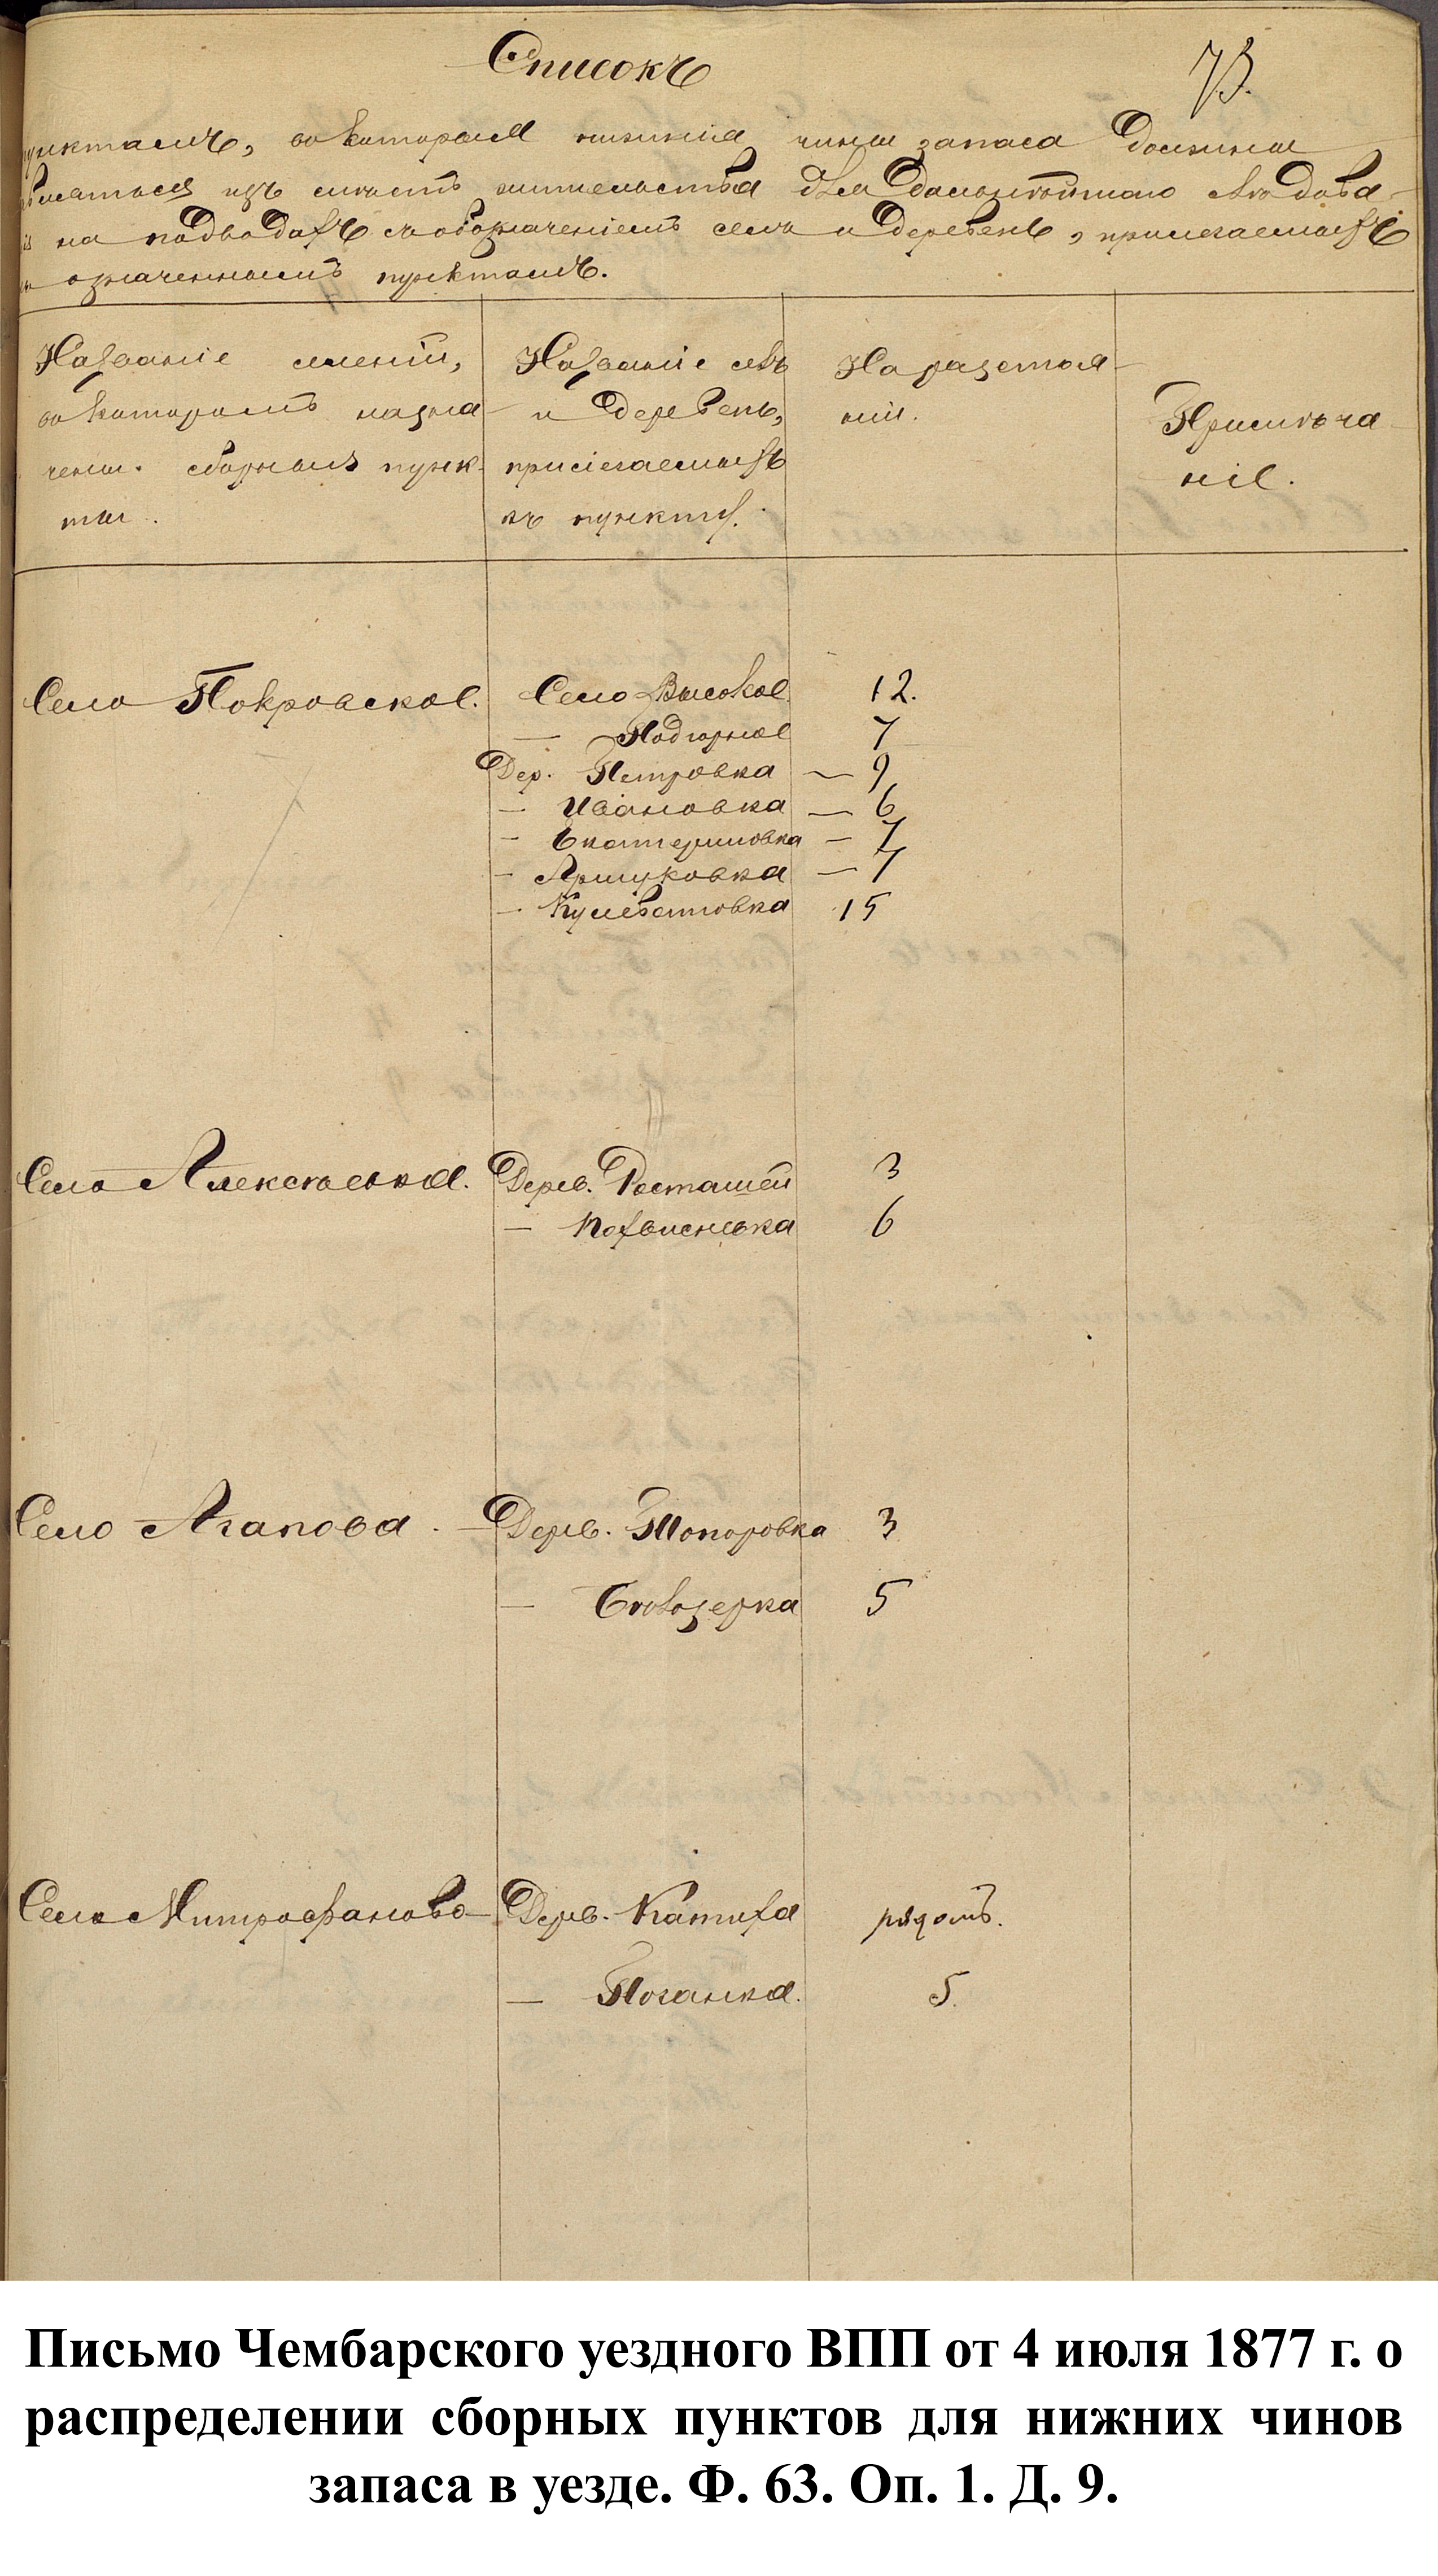 Списокъ
73.
пунктамъ, въ которыя нижніе чины запаса должны
являться изъ мѣстъ жительства для дальнѣйшаго слѣдова-
на подводахъ съ обозначеніемъ селъ и деревень, прилегаемыхъ
означеннымъ пунктамъ.
Названіе имѣній,
въ которомъ назна-
чены сборные пунк-
ты.
Названіе селъ
и деревень,
прилегаемыхъ
къ пункту.
На разстоя-
ніи.
Примѣча-
ніе.
Село Покровское. Село Высокое 12.
— Подгорное 7
Дер. Петровка — 9
— Ивановка — 6
— Екатериновка — 7
— Аршуковка — 7
— 15
Село Алексѣевка. Дерев. Росташей 3
— Похвиснѣвка 6
Село Агапова. — Дерев. Топоровка 3
— 5
Село Митрофаново Дерев. Катиха рядомъ.
— Поганка. 5.
Письмо Чембарского уездного ВПП от 4 июля 1877 г. о
распределении сборных пунктов для нижних чинов
запаса в уезде. Ф. 63. Оп. 1. Д. 9.